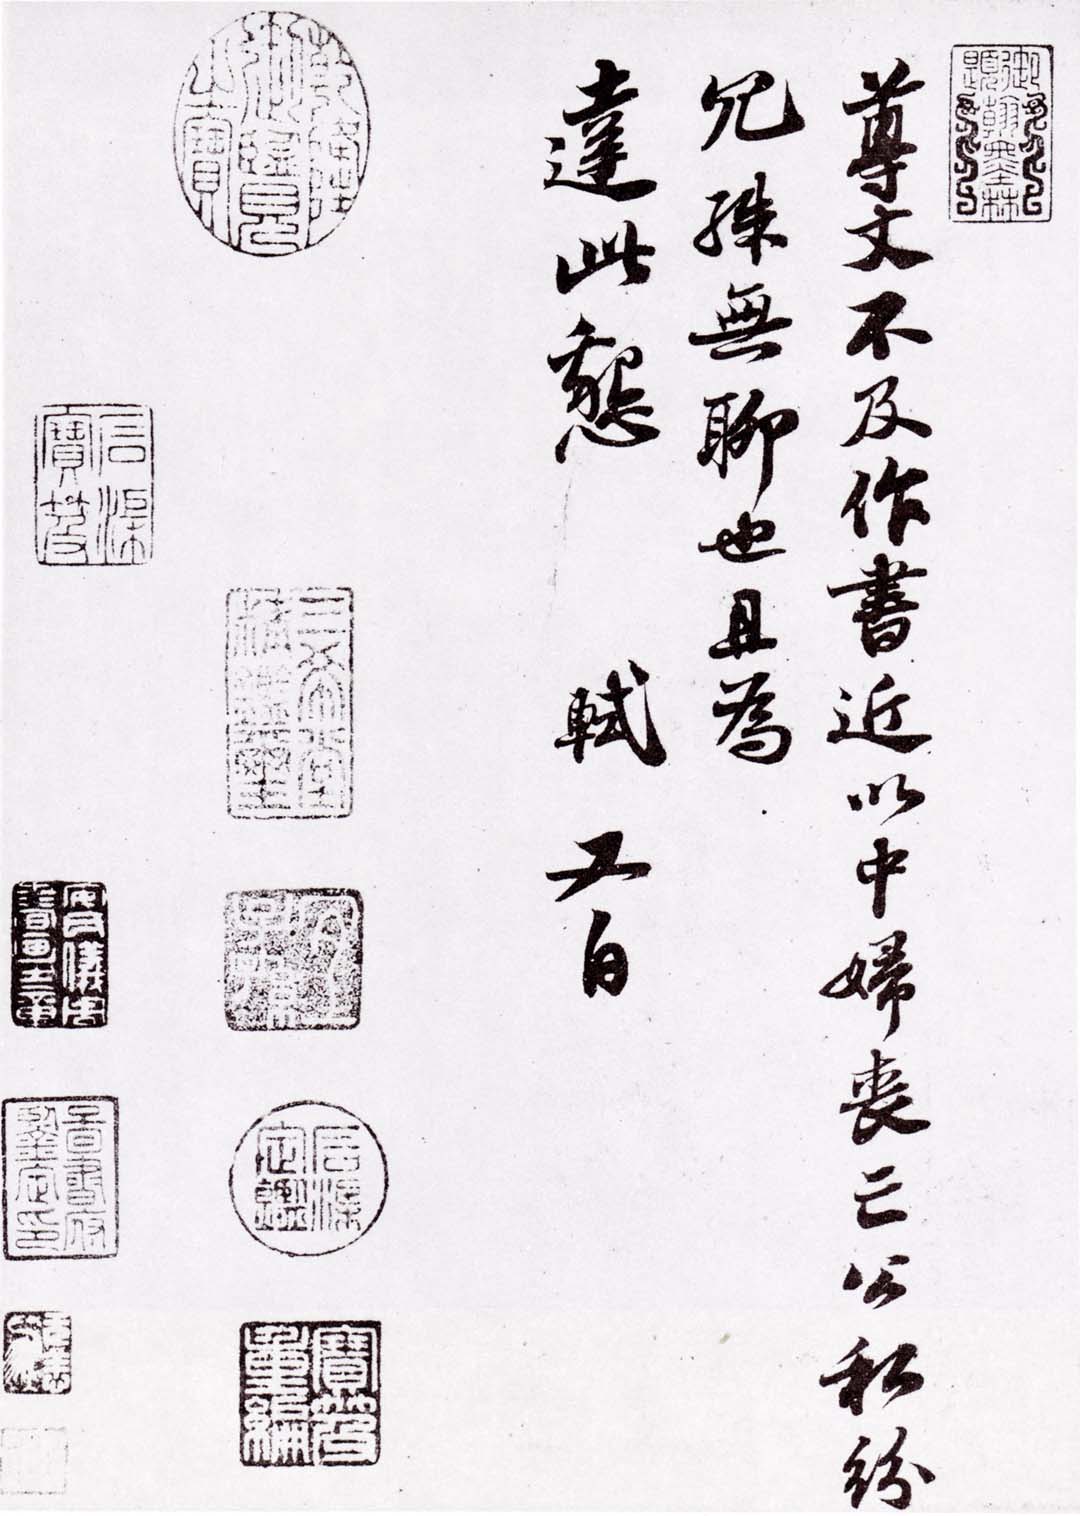 御題翰墨林
尊丈不及作書近以中婦喪亡公私紛
冗殊無聊也且為
達此懇 軾又白
乾隆御覽之寶
三希堂精鑑璽
宜子孫
石渠定鑑
寶笈重編
石渠寶笈
安氏儀周書畫之章